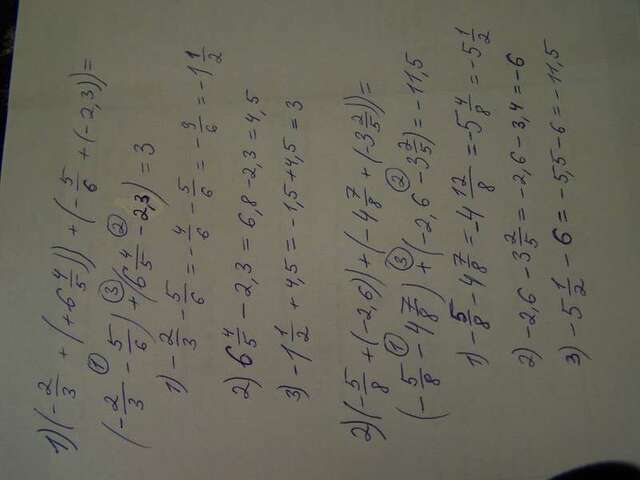 1) (-2/3 + (+6 4/5)) + (-5/6 + (-2,3)) =
(-2/3 - 5/6) + (6 4/5 - 2,3) = 3
1) -2/3 - 5/6 = -4/6 - 5/6 = -9/6 = -1 1/2
2) 6 4/5 - 2,3 = 6,8 - 2,3 = 4,5
3) -1 1/2 + 4,5 = -1,5 + 4,5 = 3
2) (-5/8 + (-2,6)) + (-4 7/8 + (-3 2/5)) =
(-5/8 - 4 7/8) + (-2,6 - 3 2/5) = -11,5
1) -5/8 - 4 7/8 = -4 12/8 = -5 4/8 = -5 1/2
2) -2,6 - 3 2/5 = -2,6 - 3,4 = -6
3) -5 1/2 - 6 = -5,5 - 6 = -11,5